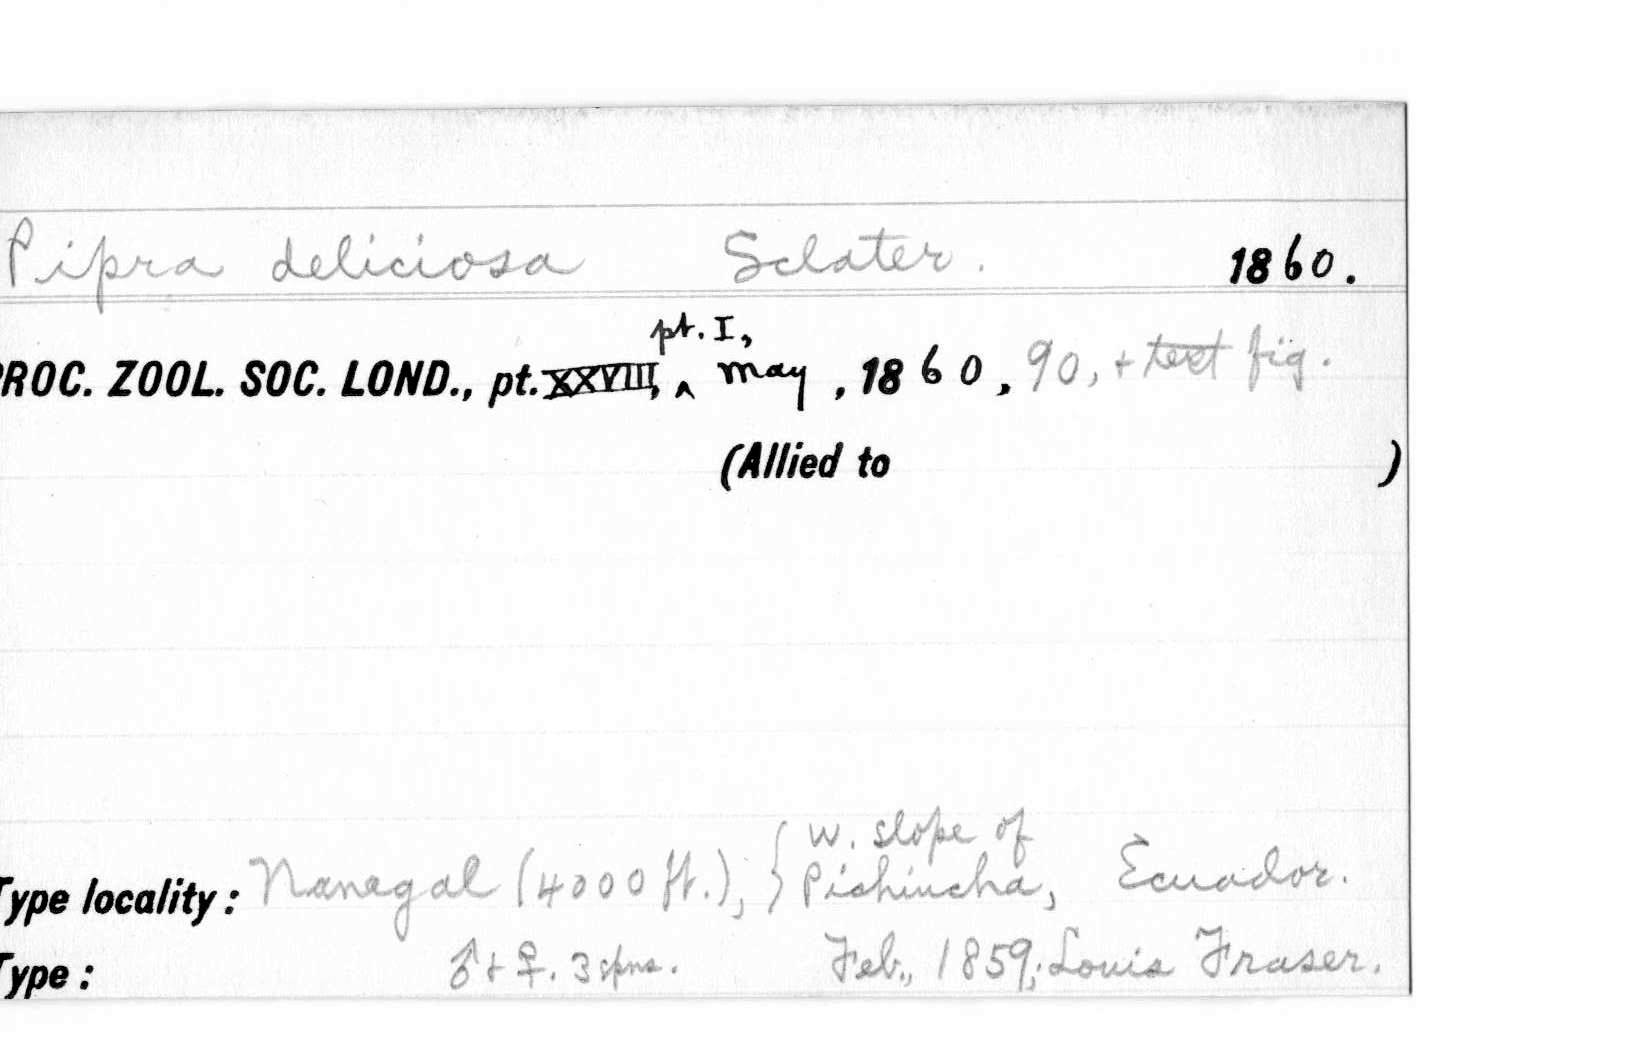 Pipra deliciosa Sclater. 1860.
pt. I,
PROC. ZOOL. SOC. LOND., pt. XXVIII, ‸ May, 1860, 90, + text fig.
(Allied to )
W. slope of
Type locality: Nanegal (4000 ft.), } Pichincha, Ecuador.
Type: ♂ + ♀. 3 spns. Feb., 1859; Louis Fraser.